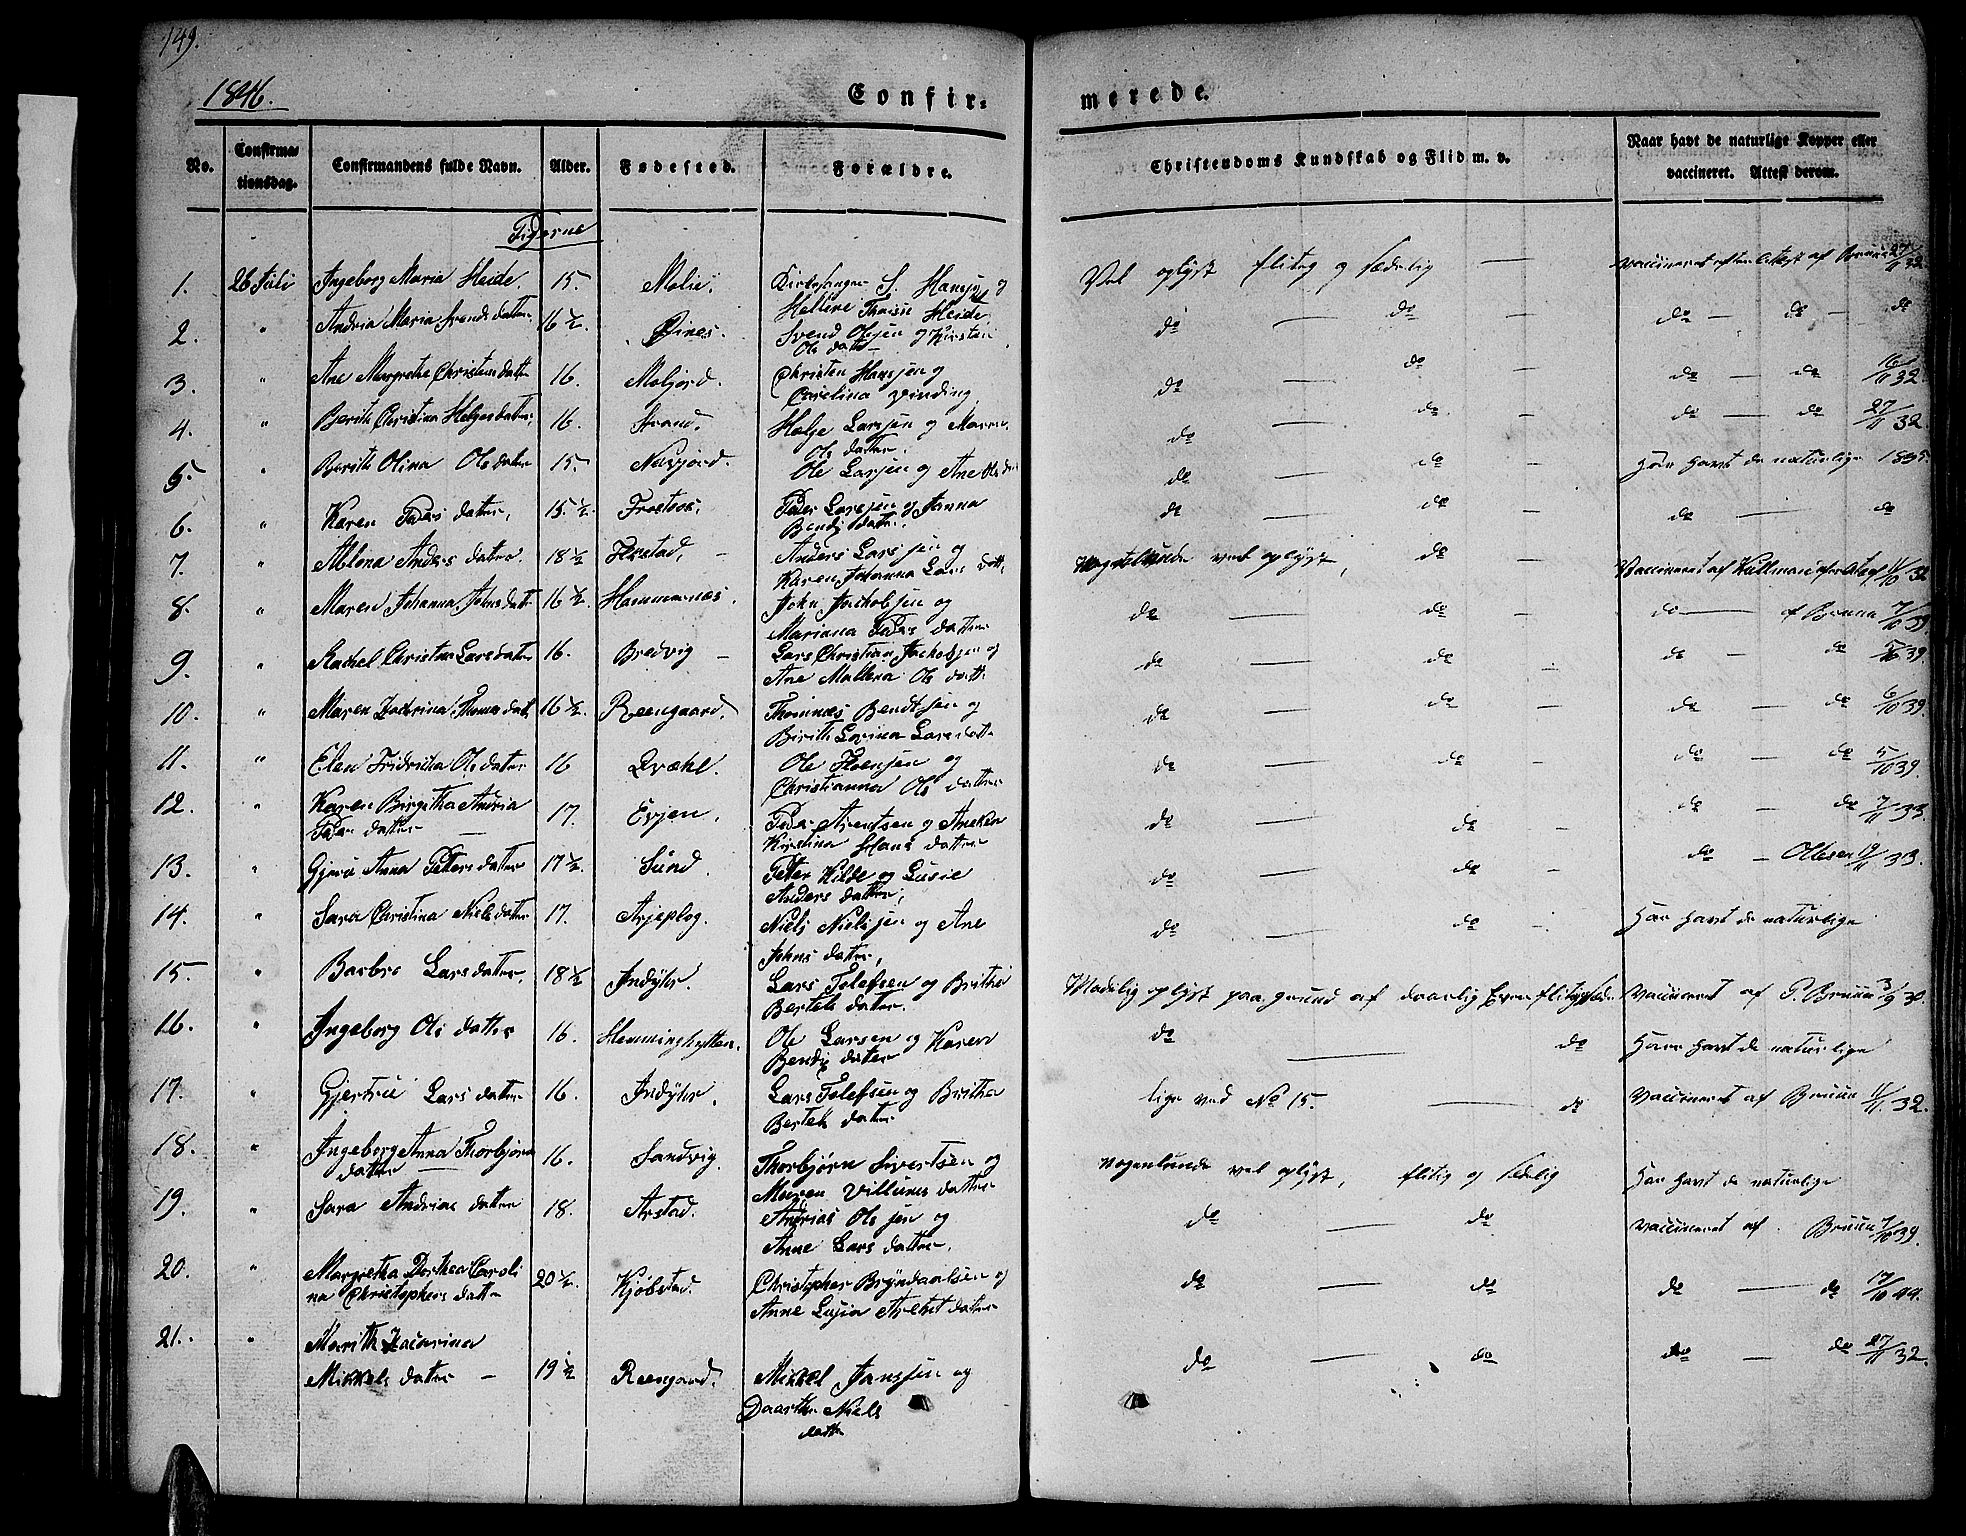 149.
1846.
Confir=
merede.
No.
Confirma=
tionsdag.
Confirmandens fulde Navn.
Alder.
Fødested.
Forældre.
Christendoms Kundskab og Flid m. v.
Naar havt de naturlige Kopper eller
vaccineret. Attest derom.
Pigerne
1. 26 Juli Ingeborg Maria Heide. 15. Molie. Kirkesanger S. Hansen og
Helline Heide
Vel oplyst flitig og sædelig — vaccineret efter Attest af Bruun 27/11 32.
2. " Andria Maria Svends datter 16 ½. Øines. Svend Olsen og Kirsten
Ols datter
do — do — do — do — do
3. " Ane Margrethe Christens datter 16. Moljord. Christen Hansen og
Carelina Vinding
do — do — do — do 16/11 32.
4. " Berith Christina Helgesdatter, 16. Strand. Helge Larsen og Maren
Ols datter.
do — do — do — do 27/11 32.
5. " Berith Olina Ols datter 15. Nesjord. Ole Larsen og Ane Ols
do — do — Har havt de naturlige 1835.
6. " Karen Peders datter, 15. ½. Peder Larsen og Anna
Bendix datter.
do — do — do — do
7. " Anders datter. 18 ½ Anders Larssen og
Karen Johanna Lars datt.
vel oplyst, do — Vaccineret af Kullman 11/10 32
8. " Maren Johanna Johns datter 16 ½. Hammernæs. John Jachobsen og
Mariana Peders datter
do — do — do — af Bruun 7/10 39.
9. " Rachel Christina Larsdatter 16. Bredvig — Lars Christian Jachobsen og
Ane Mallena Ols datt.
do — do — do — do 39.
10. " Maren Thomasdatt 16 ½. Reengaard. Thomas Bendtsen og
Birith Lovina Larsdatt
do — do — do — do 6/10 39.
11. " Elen Fridricka Ols datter 16 Qvæhl. Ole og
Christianna Ols datter
do — do — do — do 5/10 39.
12. " Karen Birgitha Andria
Peder datter — 17. Evjen. Peder Arentsen og
Kirstina Hans datter
do — do — do — do 7/11 33
13. " Anna Peters datter 17 ½. Sund. Peter Hilde og Lusie
Anders datter,
do — do — do — Ollesen 19/11 33.
14. " Sara Christina Niels datter 17. Arjeplog. Niels Nielssen og Ane
Johns datter,
do — do — Har havt de naturlige
15. " Barbro Lars datter, 18 ½ Indyhr. Lars Tolefsen og Britha
Bertels datter.
Maadelig oplyst paa grund af daarlig Evne vaccineret af P. Bruun 3/9 30.
16. " Ingeborg Ols datter 16. Hemminghytten. Ole Larsen og Karen
Bendix datter
do — do Har havt de naturlige
17. " Gjertrü Lars datter 16. Indyhr. Lars Tolefsen og Britha
Bertels datter
lige ved No 15. — do vaccineret af Bruun 11/11 32.
18. " Ingeborg Anna Thorbjørn
datter — 16. Sandvig. Thorbjørn Sivertsen og
Maren Villums datter
Nogenlunde vel oplyst, flitig og sædelig Har havt de naturlige
19. " Sara Andrias datter 18. Arstad. Andrias Olssen og
Anne Lars datter.
do — do vaccineret af Bruun 7/10 39.
20. " Margretha Dorthea Caroli
na Christophers datter 20 ½. Kjøbstad. Christopher Bryndaalsen og
Anne Lusia datter
do — do do — do 17/10 44.
21. " Marith Zacarina
Mikkels datter — 19 ½ Reengaard. Mikkel Janssen og
Daarthe Niels
datter
do — do do — do 27/11 32.